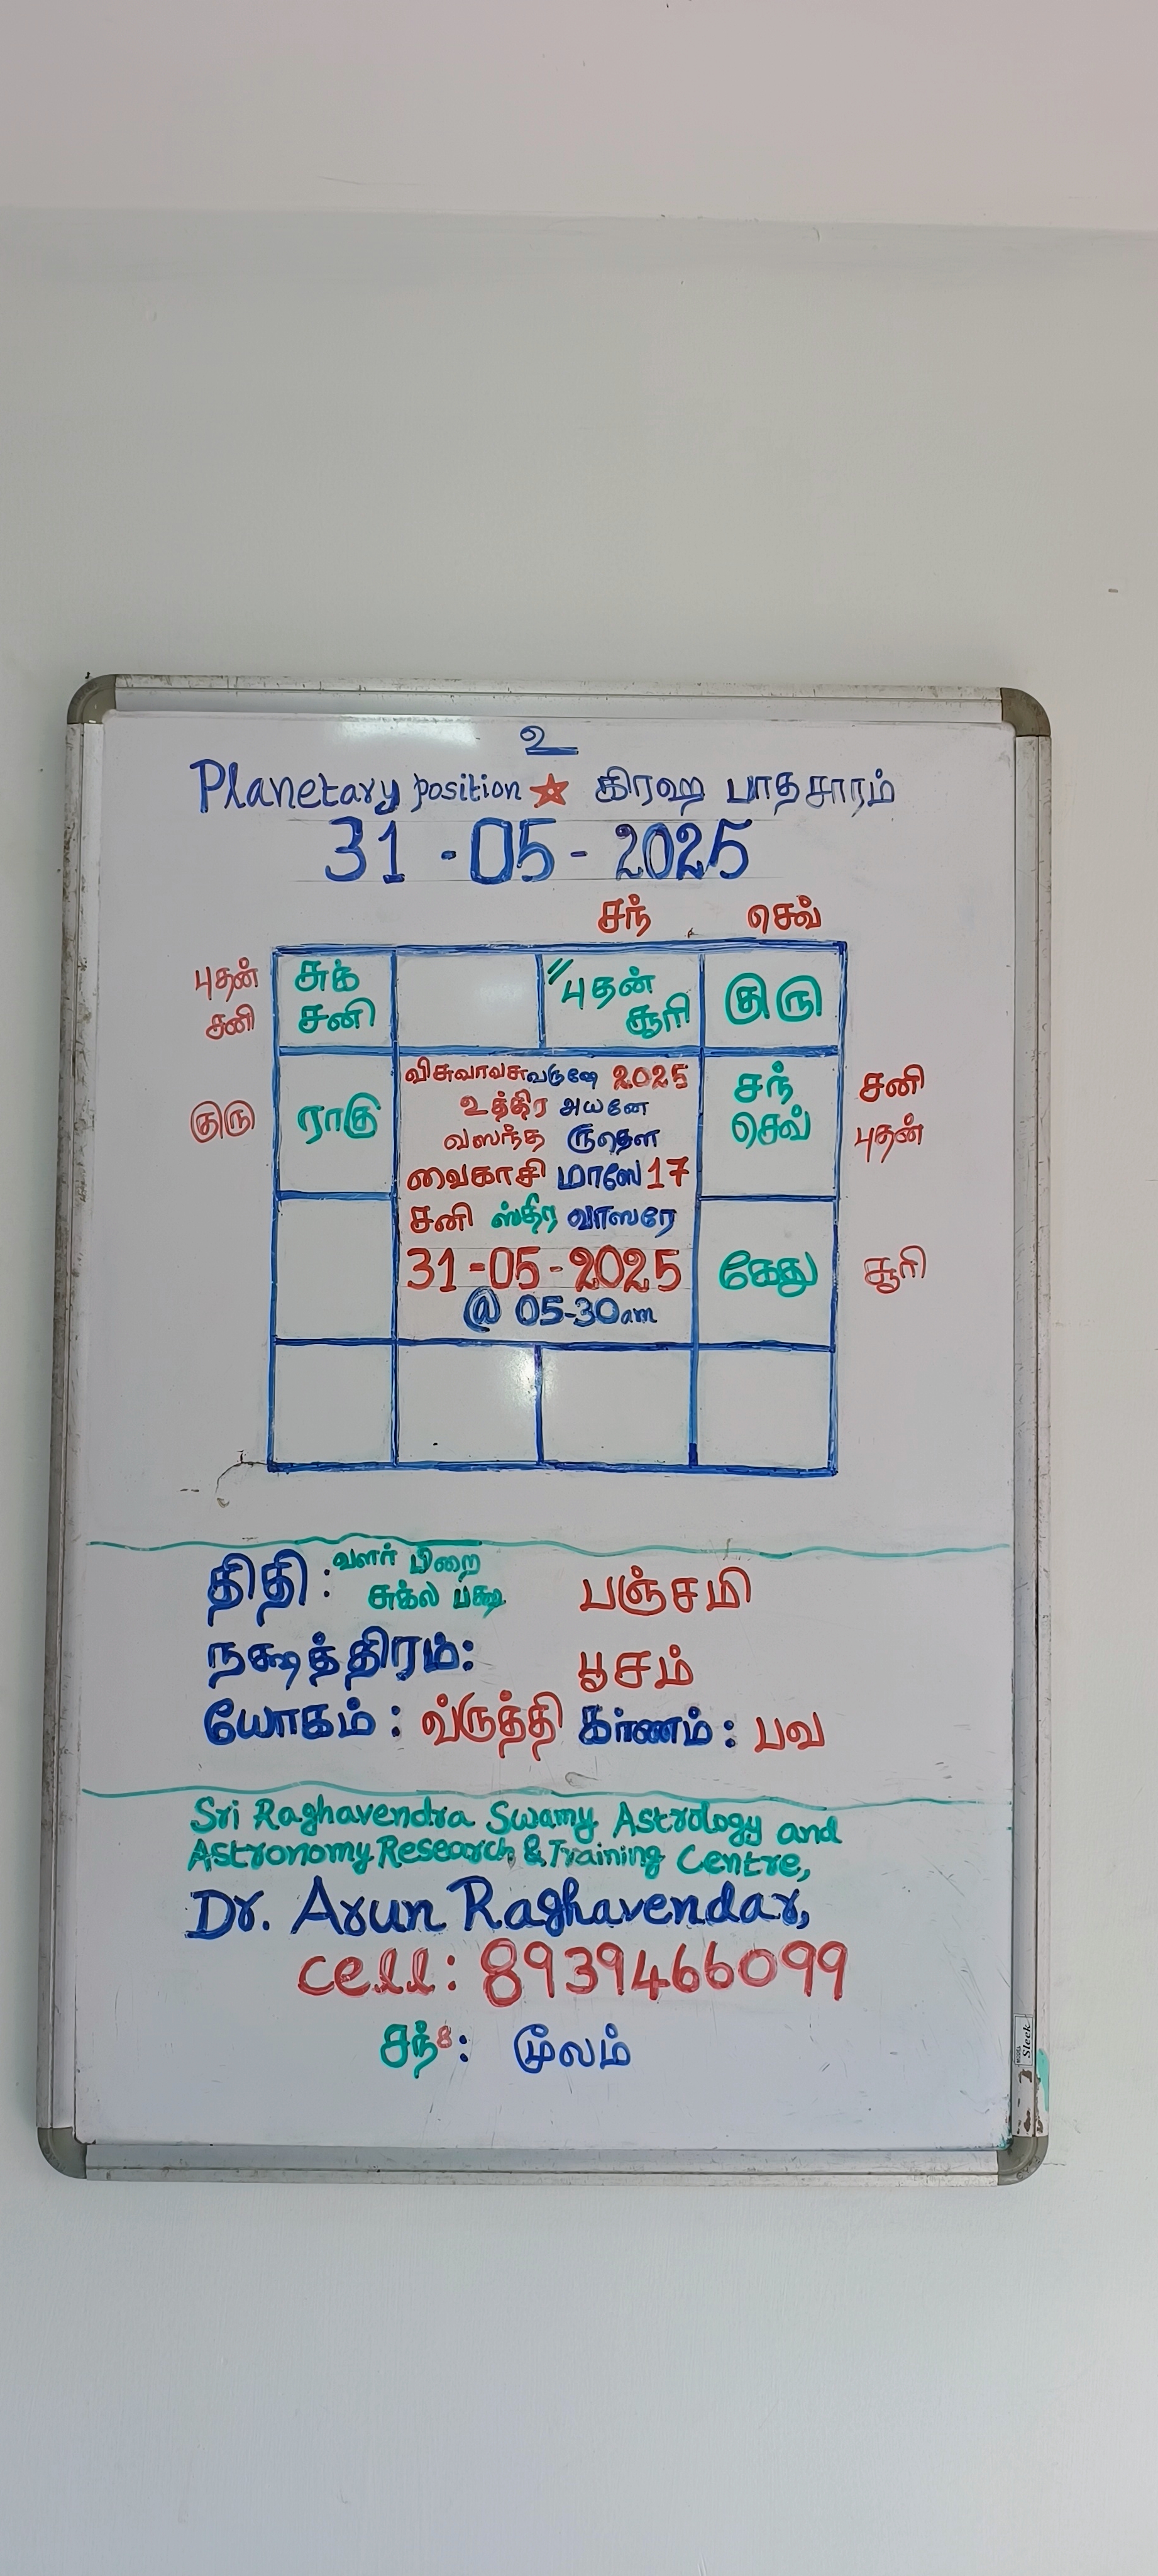 உ
Planetary position கிரஹ பாதசாரம்
31-05-2025
சந் செவ்
புதன் சுக் புதன் குரு
சனி சனி சூரி
விசுவாவசுவருஷே 2025
உத்திர அயனே
குரு ராகு சந் சனி
வஸந்த ருதௌ செவ் புதன்
வைகாசி மாஸே 17
சனி ஸ்திர வாஸரே
31-05-2025 கேது சூரி
@ 05-30am
திதி: வளர் பிறை பஞ்சமி
சுக்ல பக்ஷ
நக்ஷத்திரம்: பூசம்
யோகம்: வ்ருத்தி கர்ணம்: பவ
Sri Raghavendra Swamy Astrology and
Astronomy Research & Training Centre,
Dr. Arun Raghavendar,
Cell: 8939466099
சந்8: மூலம்
Sleek